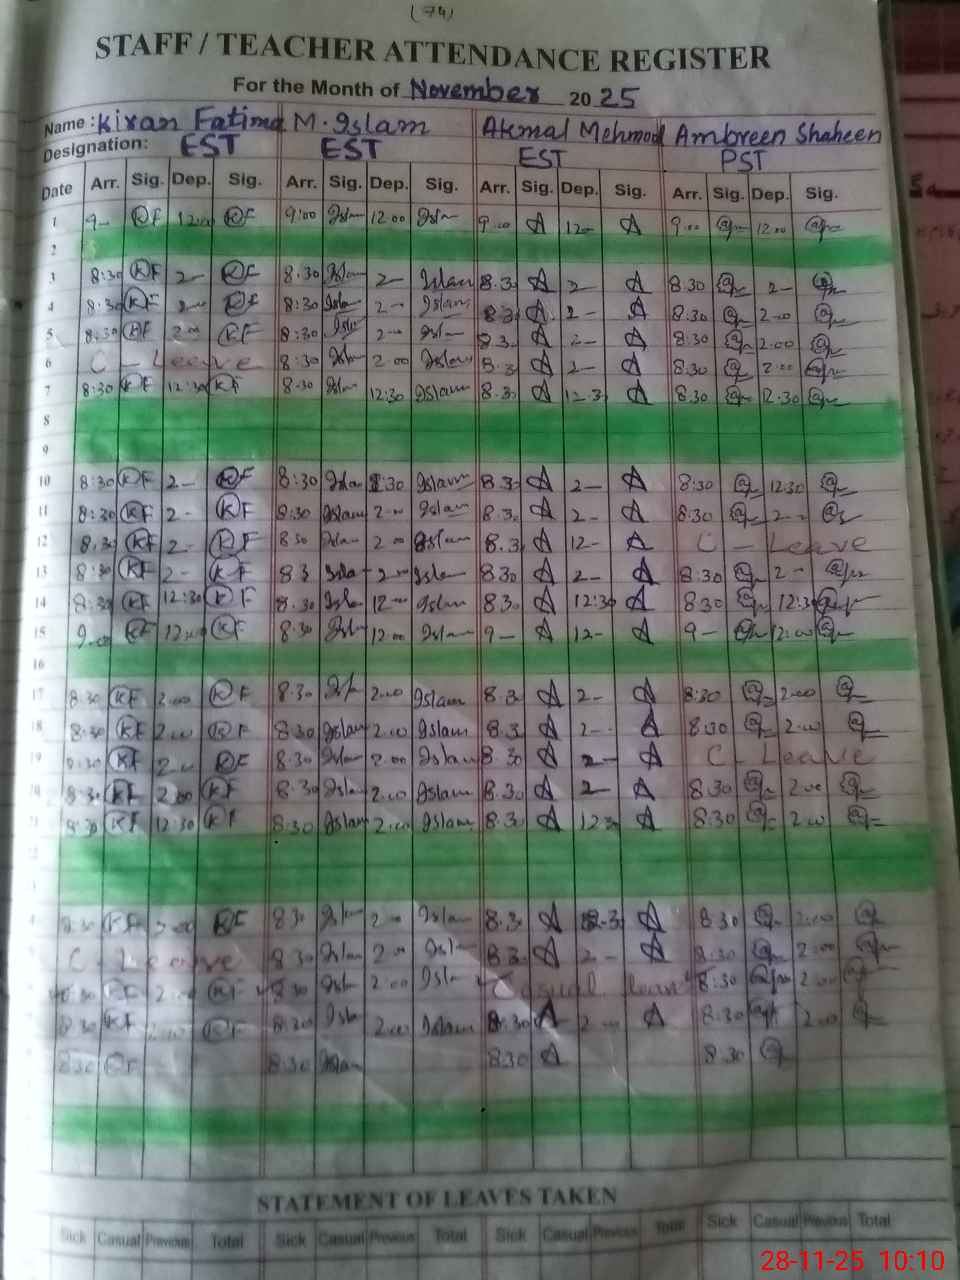 (74)
STAFF / TEACHER ATTENDANCE REGISTER
For the Month of November 2025
Name: Kiran Fatima M. Islam Akmal Mehmood Ambreen Shaheen
Designation: EST EST EST PST
Date Arr. Sig. Dep. Sig. Arr. Sig. Dep. Sig. Arr. Sig. Dep. Sig. Arr. Sig. Dep. Sig.
1 9- KF 12:00 KF 9:00 Islam 12.00 Islam 9.00 A 12- A 9.00 12.00
2
3 8:30 KF 2- KF 8.30 Islam 2- Islam 8.3 A 2- A 8.30 2-
4 8:30 KF 2-00 KF 8:30 Isla 2-00 Islam 8.3 A 2- A 8.30 2.00
5 8:30 KF 2.00 KF 8:30 Isla 2-00 Isla 8.3 A 2- A 8:30 2.00
6 C - Leave 8:30 Isla 2.00 Islam 8.3 A 2- A 8.30 2.00
7 8:30 KF 12:30 KF 8-30 Isla 12:30 Islam 8.3 A 12.3 A 8.30 12.30
8
9
10 8:30 KF 2- KF 8:30 Islam 30 Islam 8.3 A 2- A 8:30 12:30
11 8:30 KF 2- KF 8:30 Islam 2.00 Islam 8.3 A 2- A 8:30 2-
12 8.30 KF 2- KF 8.30 Islam 2.00 Islam 8.3 A 12- A C - Leave
13 8:30 KF 2- KF 8.3 Isla 2-00 Isla 8.30 A 2- A 8:30 2-
14 8:30 KF 12:30 KF 8.30 Isla 12-00 Islam 8.30 A 12:30 A 8:30 12:30
15 9.00 KF 12:00 KF 8:30 Isl 12.00 Islam 9- A 12- A 9- 12:00
16
17 8:30 KF 2:00 KF 8.30 2.00 Islam 8.3 A 2- A 8:30 2.00
18 8:30 KF 2.00 KF 8:30 Islam 2.00 Islam 8.3 A 2- A 8:30 2.00
19 8:30 KF 2.00 KF 8:30 Islam 2.00 Islam 8.30 A 2- A C - Leave
20 8:30 KF 2.00 KF 8.30 Isla 2.00 Islam 8.30 A 2- A 8:30 2.00
21 8:30 KF 12:30 KF 8:30 Islam 2.00 Islam 8.3 A 12.3 A 8:30 2.00
8:30 KF 2.00 KF 8.30 Islam 2.00 Islam 8.3 A A 8.30 2.00
C - Leave 8.30 Islam 2.00 Isl 8.3 A 2- A 8:30 2.00
8.30 KF 2.00 KF 8.30 Isla 2.00 Isla Casual leave 8:30 2.00
8:30 KF 2.00 KF 8.30 Isla 2.00 Islam 8.30 A 2.00 A 8:30 2.00
8:30 KF 8:30 Islam 8:30 A 8.30
STATEMENT OF LEAVES TAKEN
Sick Casual Previous Total Sick Casual Previous Total Sick Casual Previous Total Sick Casual Previous Total
28-11-25 10:10